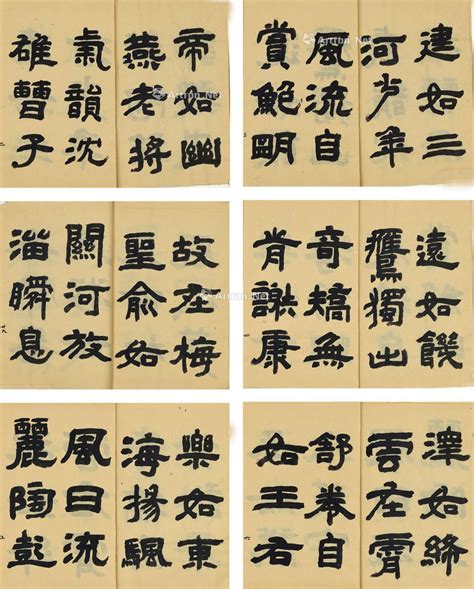 帝如幽
燕老將
氣韻沈
雄曹子
建如三
河少年
風流自
賞鮑明
故在梅
聖俞如
關河放
溜瞬息
遠如饑
鷹獨出
奇矯無
前謝康
樂如東
海揚颿
風日流
麗陶彭
澤如絳
雲在霄
舒卷自
如王右
Artron.Net